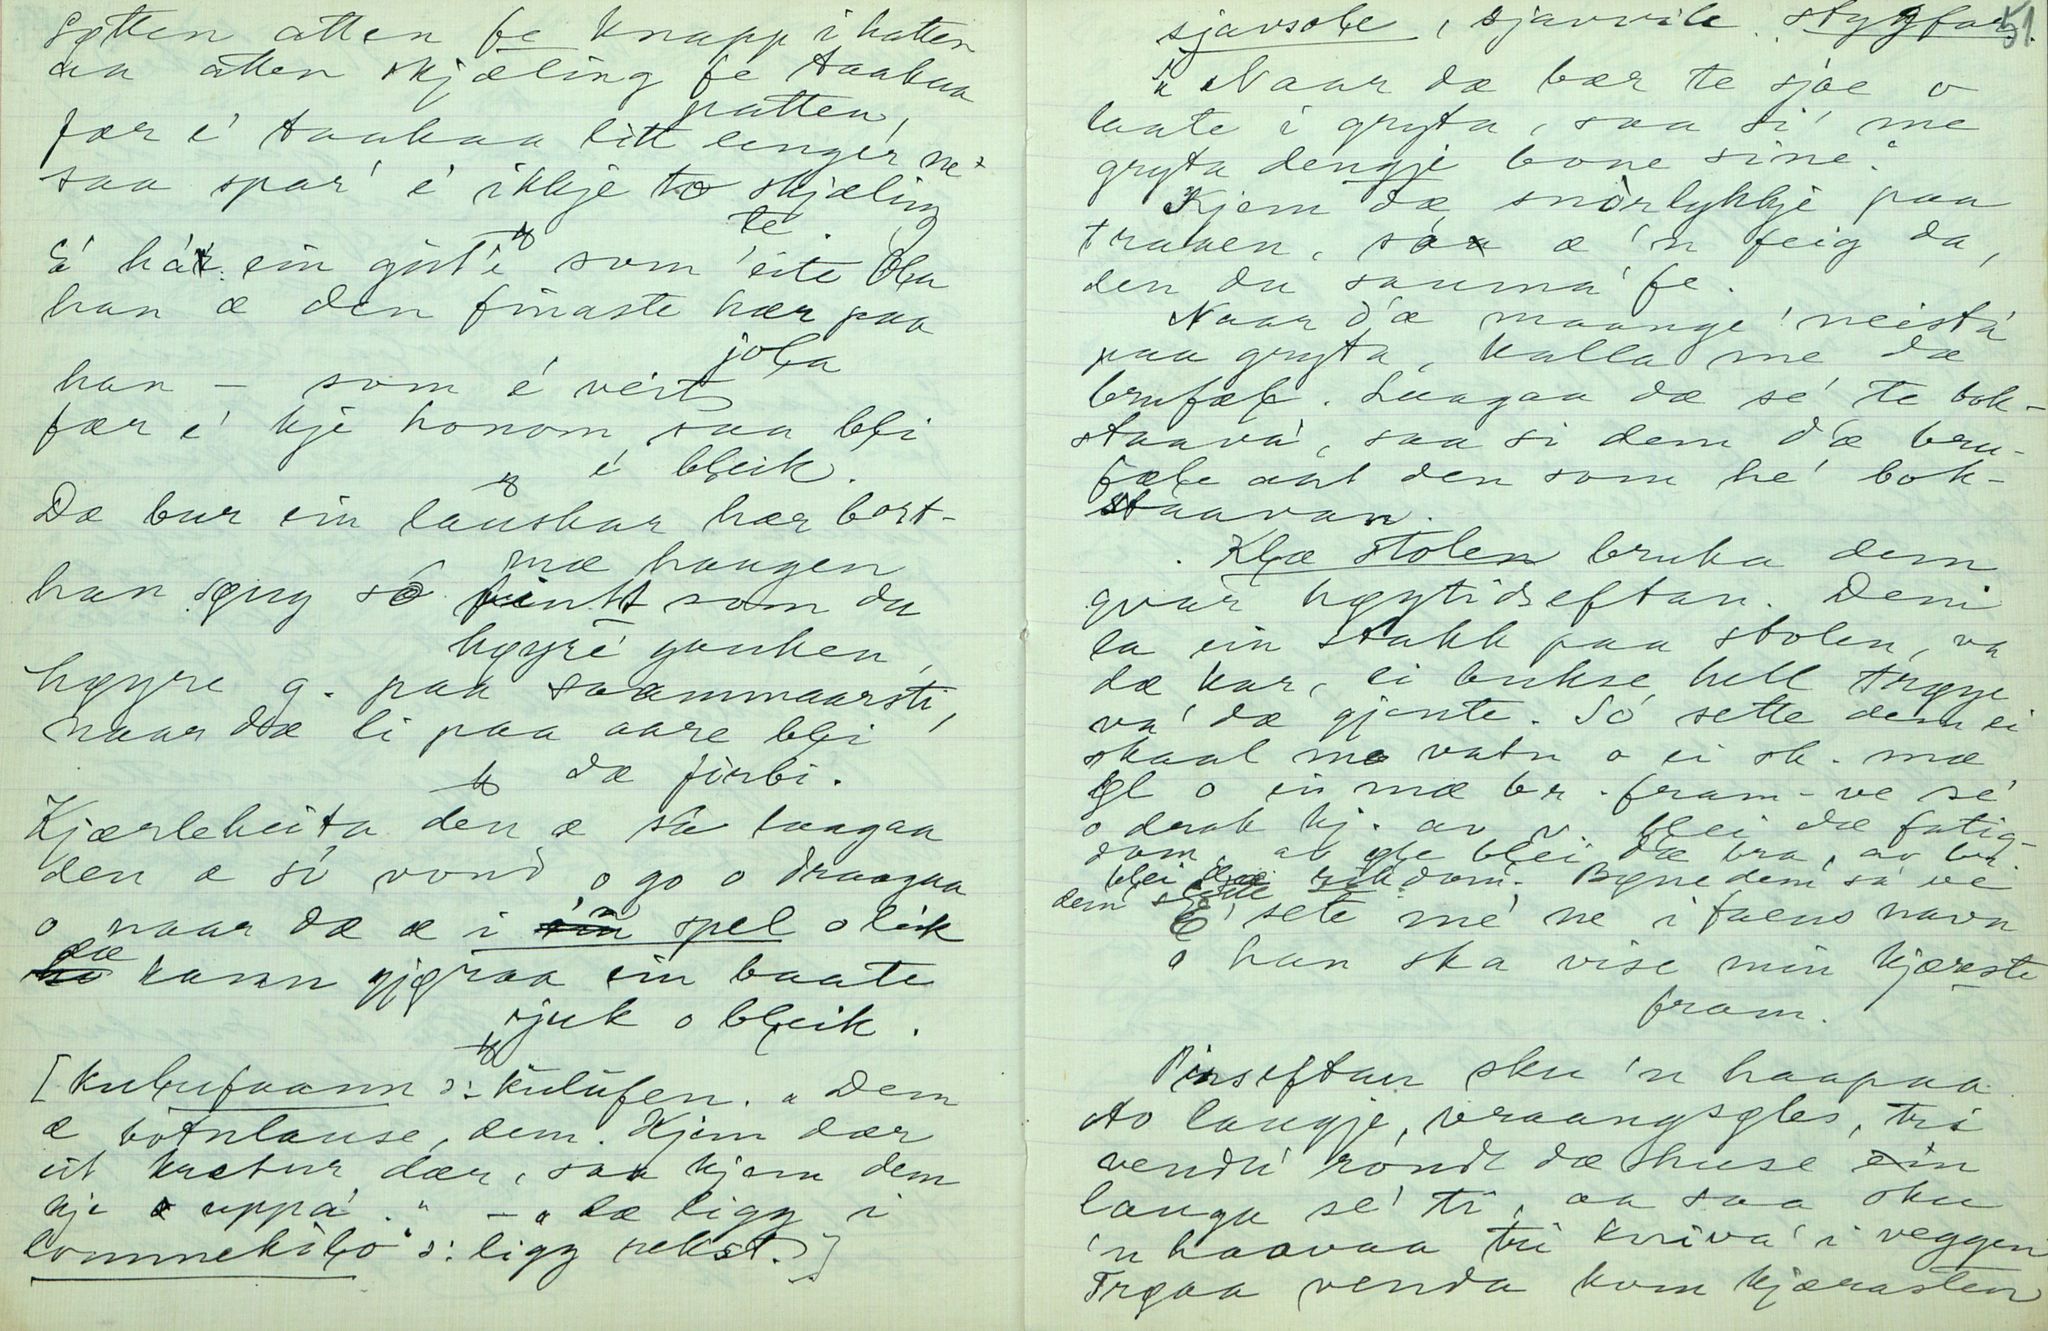 Søtten atten fe knapp i hatten
aa atten skjæling fe taakaa
patten,
fær e' taakaa litt lenger ne'
saa spar' e' ikkje to skjæling
te.
E' har ein gut'e som eite Ola
han æ den finaste hær paa
jola
han – som e' veit
fær e' kje honom saa bli
e' bleik.
Dæ bur ein lauskar hær bort-
mæ haugen
han søng so fint som du
høyre' gauken,
høyre g. paa saammaarsti,
naar dæ li paa aare bli
dæ firbi.
Kjærleheita den æ så laagaa
den æ så vond o go o draagaa
o naar dæ æ i spel o leik
dæ kann gjøraa ein baate
sjuk o bleik.
[Kulufaann ɔ: kulufen. "Dem
æ botnlause, dem. Kjem dær
ut krætur dær, saa kjem dem
kje uppå." – "dæ ligg i
lommekålo" ɔ: ligg nekst.]
51
sjavsole, sjavvile. styggfar.
"Naar dæ bær te sjoe o
laate i gryta, saa si' me
gryta dengje bone sine".
Kjem dæ snorlykkje paa
traaen, saa æ 'n feig da,
den du sauma' fe.
Naar d'æ maange' neista'
paa gryta, kalla me dæ
brufæle. Laagaa dæ se' te bok-
staava', saa si dem d'æ bru-
fæle aat den som he' bok-
staavan.
Klæ stolen bruka dem
qvar høytidseftan. Dem
la ein stakk paa stolen, va
dæ kar, ei bukse hell trøye
va' dæ gjente. So sette dem ei
skaal mæ vatn o ei sk. mæ
øl o ei mæ br. fram-ve se'
o drak kj. av v. blei dæ fatig-
dom, av øle blei dæ bra, av br.
blei dæ rikdom. Bøne dem sa ve
dem
E' sete me' ne i faens navn
o han ska vise min kjæreste
fram.
Pinseftan sku 'n haapaa
to laugje, vraangsøles, tri
vendu rondt dæ huse ein
lauga se' ti, aa saa sku
'n haavaa tri kniva' i veggen
Trøaa venda kom kjærasten